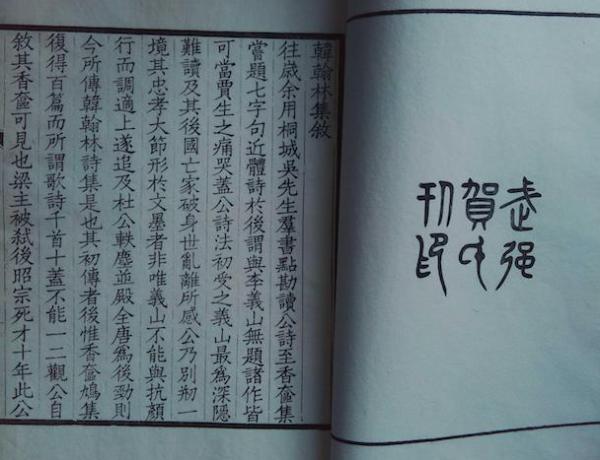 武强
賀氏
刊印
韓翰林集敘
往歲余用桐城吳先生羣書點勘讀公詩至香奩集
嘗題七字句近體詩於後謂與李義山無題諸作皆
可當賈生之痛哭蓋公詩法初受之義山最爲深隱
難讀及其後國亡家破身世亂離所感公乃別剏一
境其忠孝大節形於文墨者非唯義山不能與抗顏
行而調適上遂追及杜公軼塵並殿全唐爲後勁則
今所傳韓翰林詩集是也其初傳者後惟香奩鳩集
復得百篇而所謂歌詩千首十蓋不能一二觀公自
敘其香奩可見也梁主被弑後昭宗死才十年此公